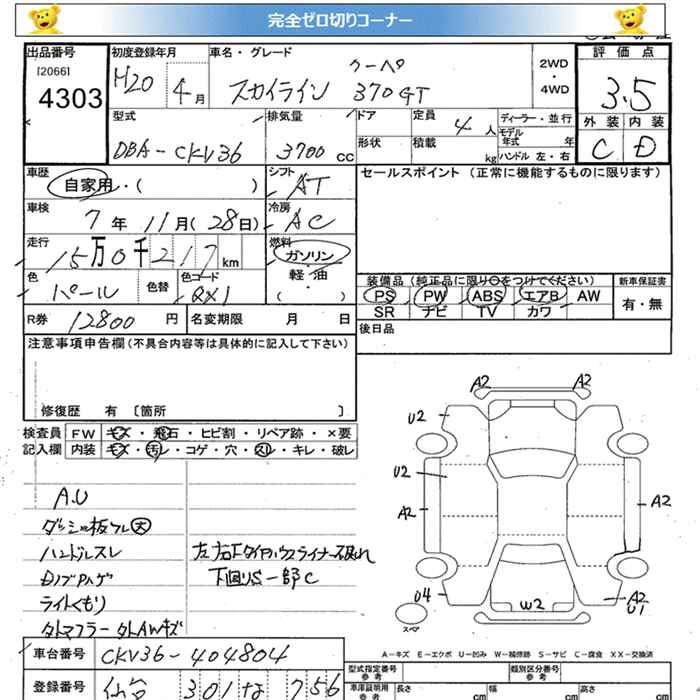 完全ゼロ切りコーナー
出品番号 初度登録年月 車名・グレード 評価点
120661
4303 H20 4月 スカイライン クーペ 370GT 2WD・4WD 3.5
型式 排気量 ドア 定員 ディーラー・並行 外装 内装
DBA-CKV36 3700cc 4人 モデル年式 年 C D
形状 積載 kg ハンドル 左・右
車歴 自家用・( ) シフト AT セールスポイント(正常に機能するものに限ります)
車検 7年 11月(28日) 冷房 AC
走行 15万0千217km 燃料 ガソリン・軽油・( )
色 パール 色替 色コード QX1
装備品(純正品に限り○をつけてください) 新車保証書
PS PW ABS エアB AW 有・無
SR ナビ TV カワ
R券 12800円 名変期限 月 日 後日品
注意事項申告欄(不具合内容等は具体的に記入して下さい)
修復歴 有 〔箇所 〕
検査員 FW キズ・飛石・ヒビ割・リペア跡・×要
記入欄 内装 キズ・汚レ・コゲ・穴・スレ・キレ・破レ
A.U
ダッシュ板ワレ大
ハンドルスレ 左右Fタイヤハウスライナー破れ
Dノブハゲ 下回りS一部C
ライトくもり
タトマフラー タトAWキズ
A2 A2
U2
U2
A2 A2
U4 W2 A2
U1
スペア
A-キズ E-エクボ U-凹み W-補修跡 S-サビ C-腐食 XX-交換済
車台番号 CKV36-404804
登録番号 仙台 301 な 756
型式指定番号 参考 類別区分番号 参考
車庫証明用 参考 長さ cm 幅 cm 高さ cm